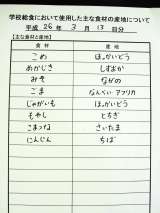 学校給食において使用した主な食材の産地について
平成 26 年 3 月 13 日分
【主な食材と産地】
食材 産地
こめ ほっかいどう
めかじき しずおか
みそ ながの
ごま なんべい アフリカ
じゃがいも ほっかいどう
もやし とちぎ
こまつな さいたま
にんじん ちば